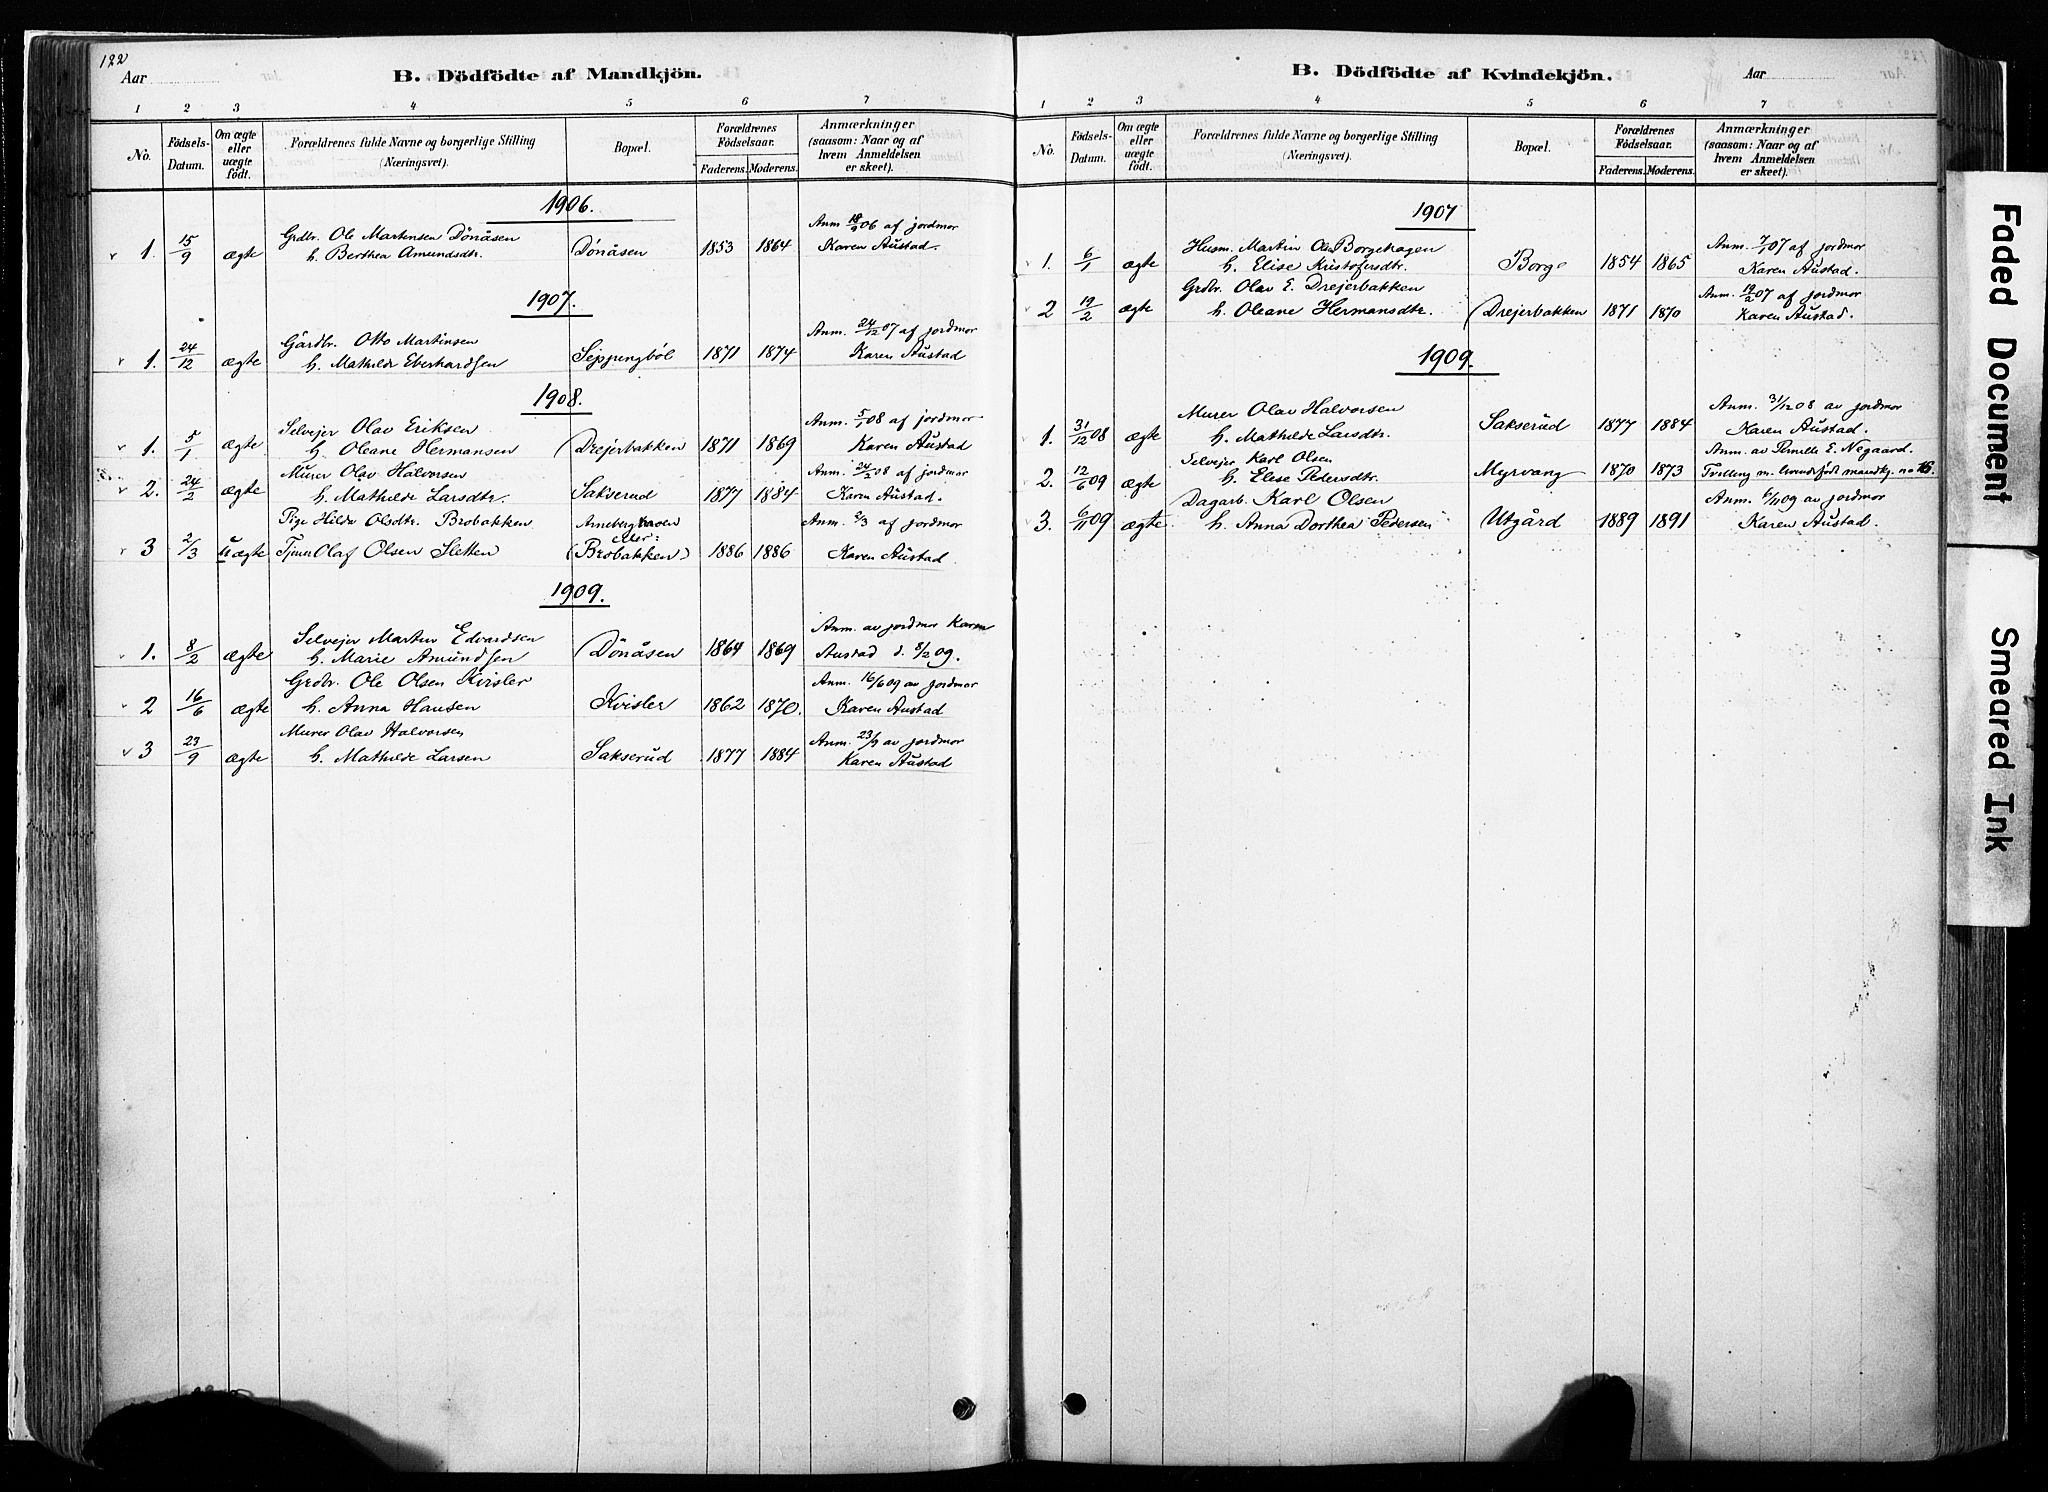 122
Aar
B. Dödfödte af Mandkjön.
1 2 3 4 5 6 7
No.
Födsels-Datum.
Om ægte eller uægte födt.
Forældrenes fulde Navne og borgerlige Stilling (Næringsvei).
Bopæl.
Forældrenes Födselsaar.
Faderens. Moderens.
Anmærkninger (saasom: Naar og af hvem Anmeldelsen er skeet).
1906.
Grdbr. Ole Martensen Dönåsen Anm. 18/9 06 af jordmor
1. 15/9 ægte h. Berthea Amundsdtr. Dönåsen 1853 1864 Karen Austad.
1907.
Gårdbr. Otto Martinsen Anm. 24/12 07 af jordmor
1. 24/12 ægte h. Mathilde Eberhardsen Seppengböl 1871 1874 Karen Austad
1908.
Selvejer Olav Eriksen Anm. 5/1 08 af jordmor
1. 5/1 ægte h. Oleane Hermansen Drejerbakken 1871 1869 Karen Austad
Murer Olav Halvorsen Anm. 24/2 08 af jordmor
2. 24/2 ægte h. Mathilde Larsdtr. Sakserud 1877 1884 Karen Austad.
Pige Hilda Olsdtr. Brobakken Arneberg Anm. 2/3 af jordmor
3 2/3 uægte Tjener Olaf Olsen Sletten (Brobakken) 1886 1886 Karen Austad
1909.
Selvejer Martin Edvardsen Anm. av jordmor Karen
1. 8/2 ægte h. Marie Amundsen Dönåsen 1864 1869 Austad d. 8/2 09.
Grdbr. Ole Olsen Kvisler Anm. 16/6 09 av jordmor
2 16/6 ægte h. Anna Hansen Kvisler 1862 1870. Karen Austad
Murer Olav Halvorsen Anm. 23/9 av jordmor
3 23/9 ægte h. Mathilde Larsen Sakserud 1877 1884 Karen Austad
B. Dödfödte af Kvindekjön.
Aar
1 2 3 4 5 6 7
No.
Födsels-Datum.
Om ægte eller uægte födt.
Forældrenes fulde Navne og borgerlige Stilling (Næringsvei).
Bopæl.
Forældrenes Födselsaar.
Faderens. Moderens.
Anmærkninger (saasom: Naar og af hvem Anmeldelsen er skeet).
1907
Husm. Martin Olsen Borgehagen Anm. 7/1 07 af jordmor
1. 6/1 ægte h. Elise Kristofersdtr. Borge 1854 1865 Karen Austad.
Grdbr. Olav E. Drejerbakken Anm. 19/2 07 af jordmor
2 19/2 ægte h. Oleane Hermansdtr. Drejerbakken 1871 1870 Karen Austad.
1909.
Murer Olav Halvorsen Anm. 31/12 08 av jordmor
1. 31/12 08 ægte h. Mathilde Larsdtr. Sakserud 1877 1884 Karen Austad.
Selvejer Karl Olsen Anm. av Pernille E. Negaard.
2. 12/6 09 ægte h. Elise Pedersdtr. Myrvang 1870 1873 Tvilling m. levendefödt mandkj. no 16.
Dagarb. Karl Olsen Anm. 6/11 09 av jordmor
3. 6/11 09 ægte h. Anna Dorthea Pedersen Utgård 1889 1891 Karen Austad.
Faded Document
Smeared Ink